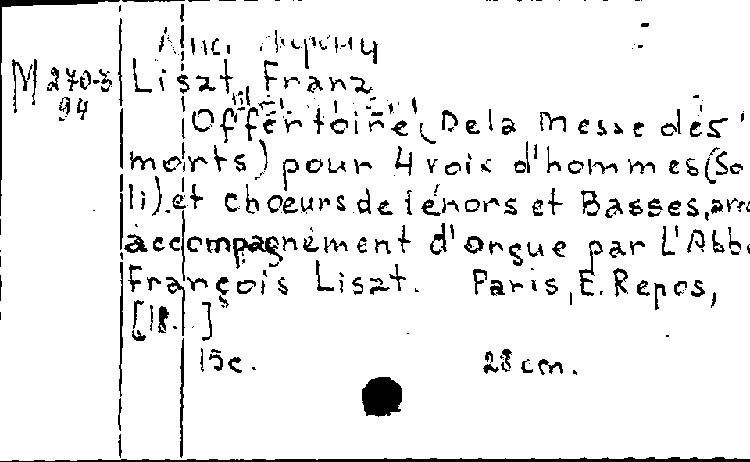 M 270-3
94
Liszt, Franz
Offertoire (De la Messe des
morts) pour 4 voix d'hommes (So
li) et choeurs de ténors et Basses, avec
accompagnement d'orgue par L'Abbé
François Liszt. Paris, E. Repos,
[18..]
15c. 28 cm.